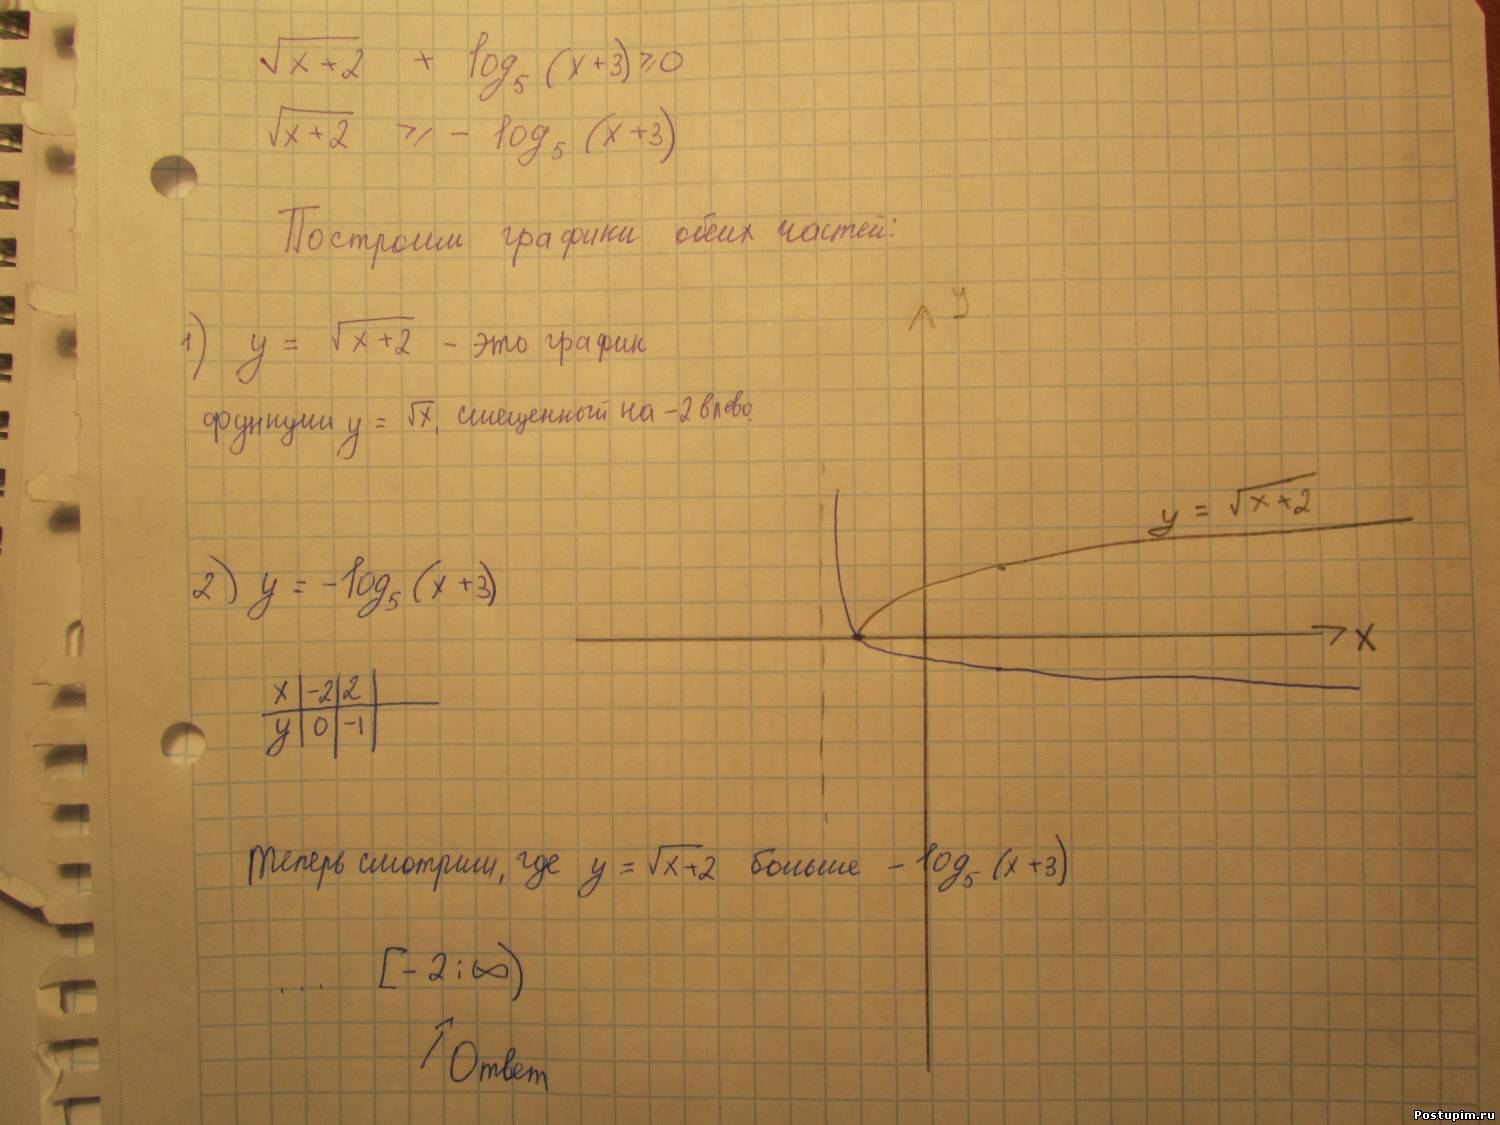 √x+2 + log₅(x+3)≥0
√x+2 ≥ - log₅(x+3)
Построим графики обеих частей:
1) y = √x+2 - это график
функции y = √x, смещенный на -2 влево.
y
y = √x+2
x
2) y = -log₅(x+3)
x | -2 | 2 |
y | 0 | -1 |
Теперь смотрим, где y = √x+2 больше - log₅(x+3)
... [-2; ∞)
Ответ
Postupim.ru